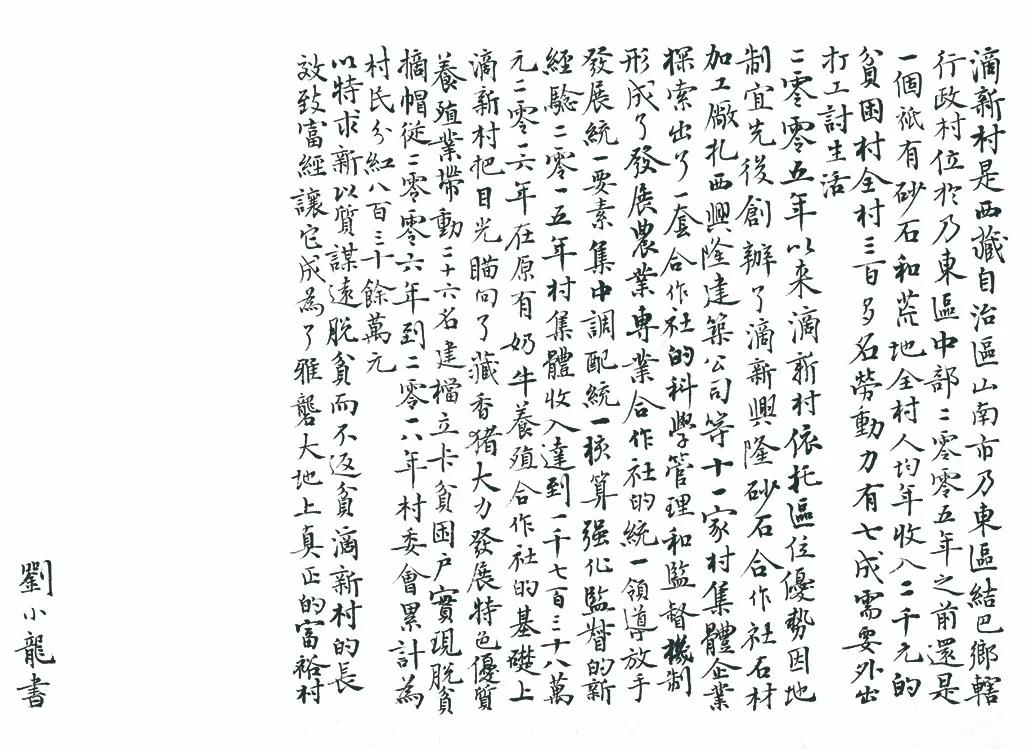 滴新村是西藏自治區山南市乃東區結巴鄉轄
行政村位於乃東區中部二零零五年之前還是
一個祗有砂石和荒地全村人均年收入二千元的
貧困村全村三百多名勞動力有七成需要外出
打工討生活
二零零五年以來滴新村依托區位優勢因地
制宜先後創辦了滴新興隆砂石合作社石材
加工廠扎西興隆建築公司等十一家村集體企業
探索出了一套合作社的科學管理和監督機制
形成了發展農業專業合作社的統一領導放手
發展統一要素集中調配統一核算强化監督的新
經驗二零一五年村集體收入達到一千七百三十八萬
元二零一六年在原有奶牛養殖合作社的基礎上
滴新村把目光瞄向了藏香猪大力發展特色優質
養殖業帶動二十六名建檔立卡貧困户實現脱貧
摘帽從二零零六年到二零一八年村委會累計為
村民分紅八百三十餘萬元
以特求新以質謀遠脱貧而不返貧滴新村的長
效致富經讓它成為了雅礱大地上真正的富裕村
劉小龍書